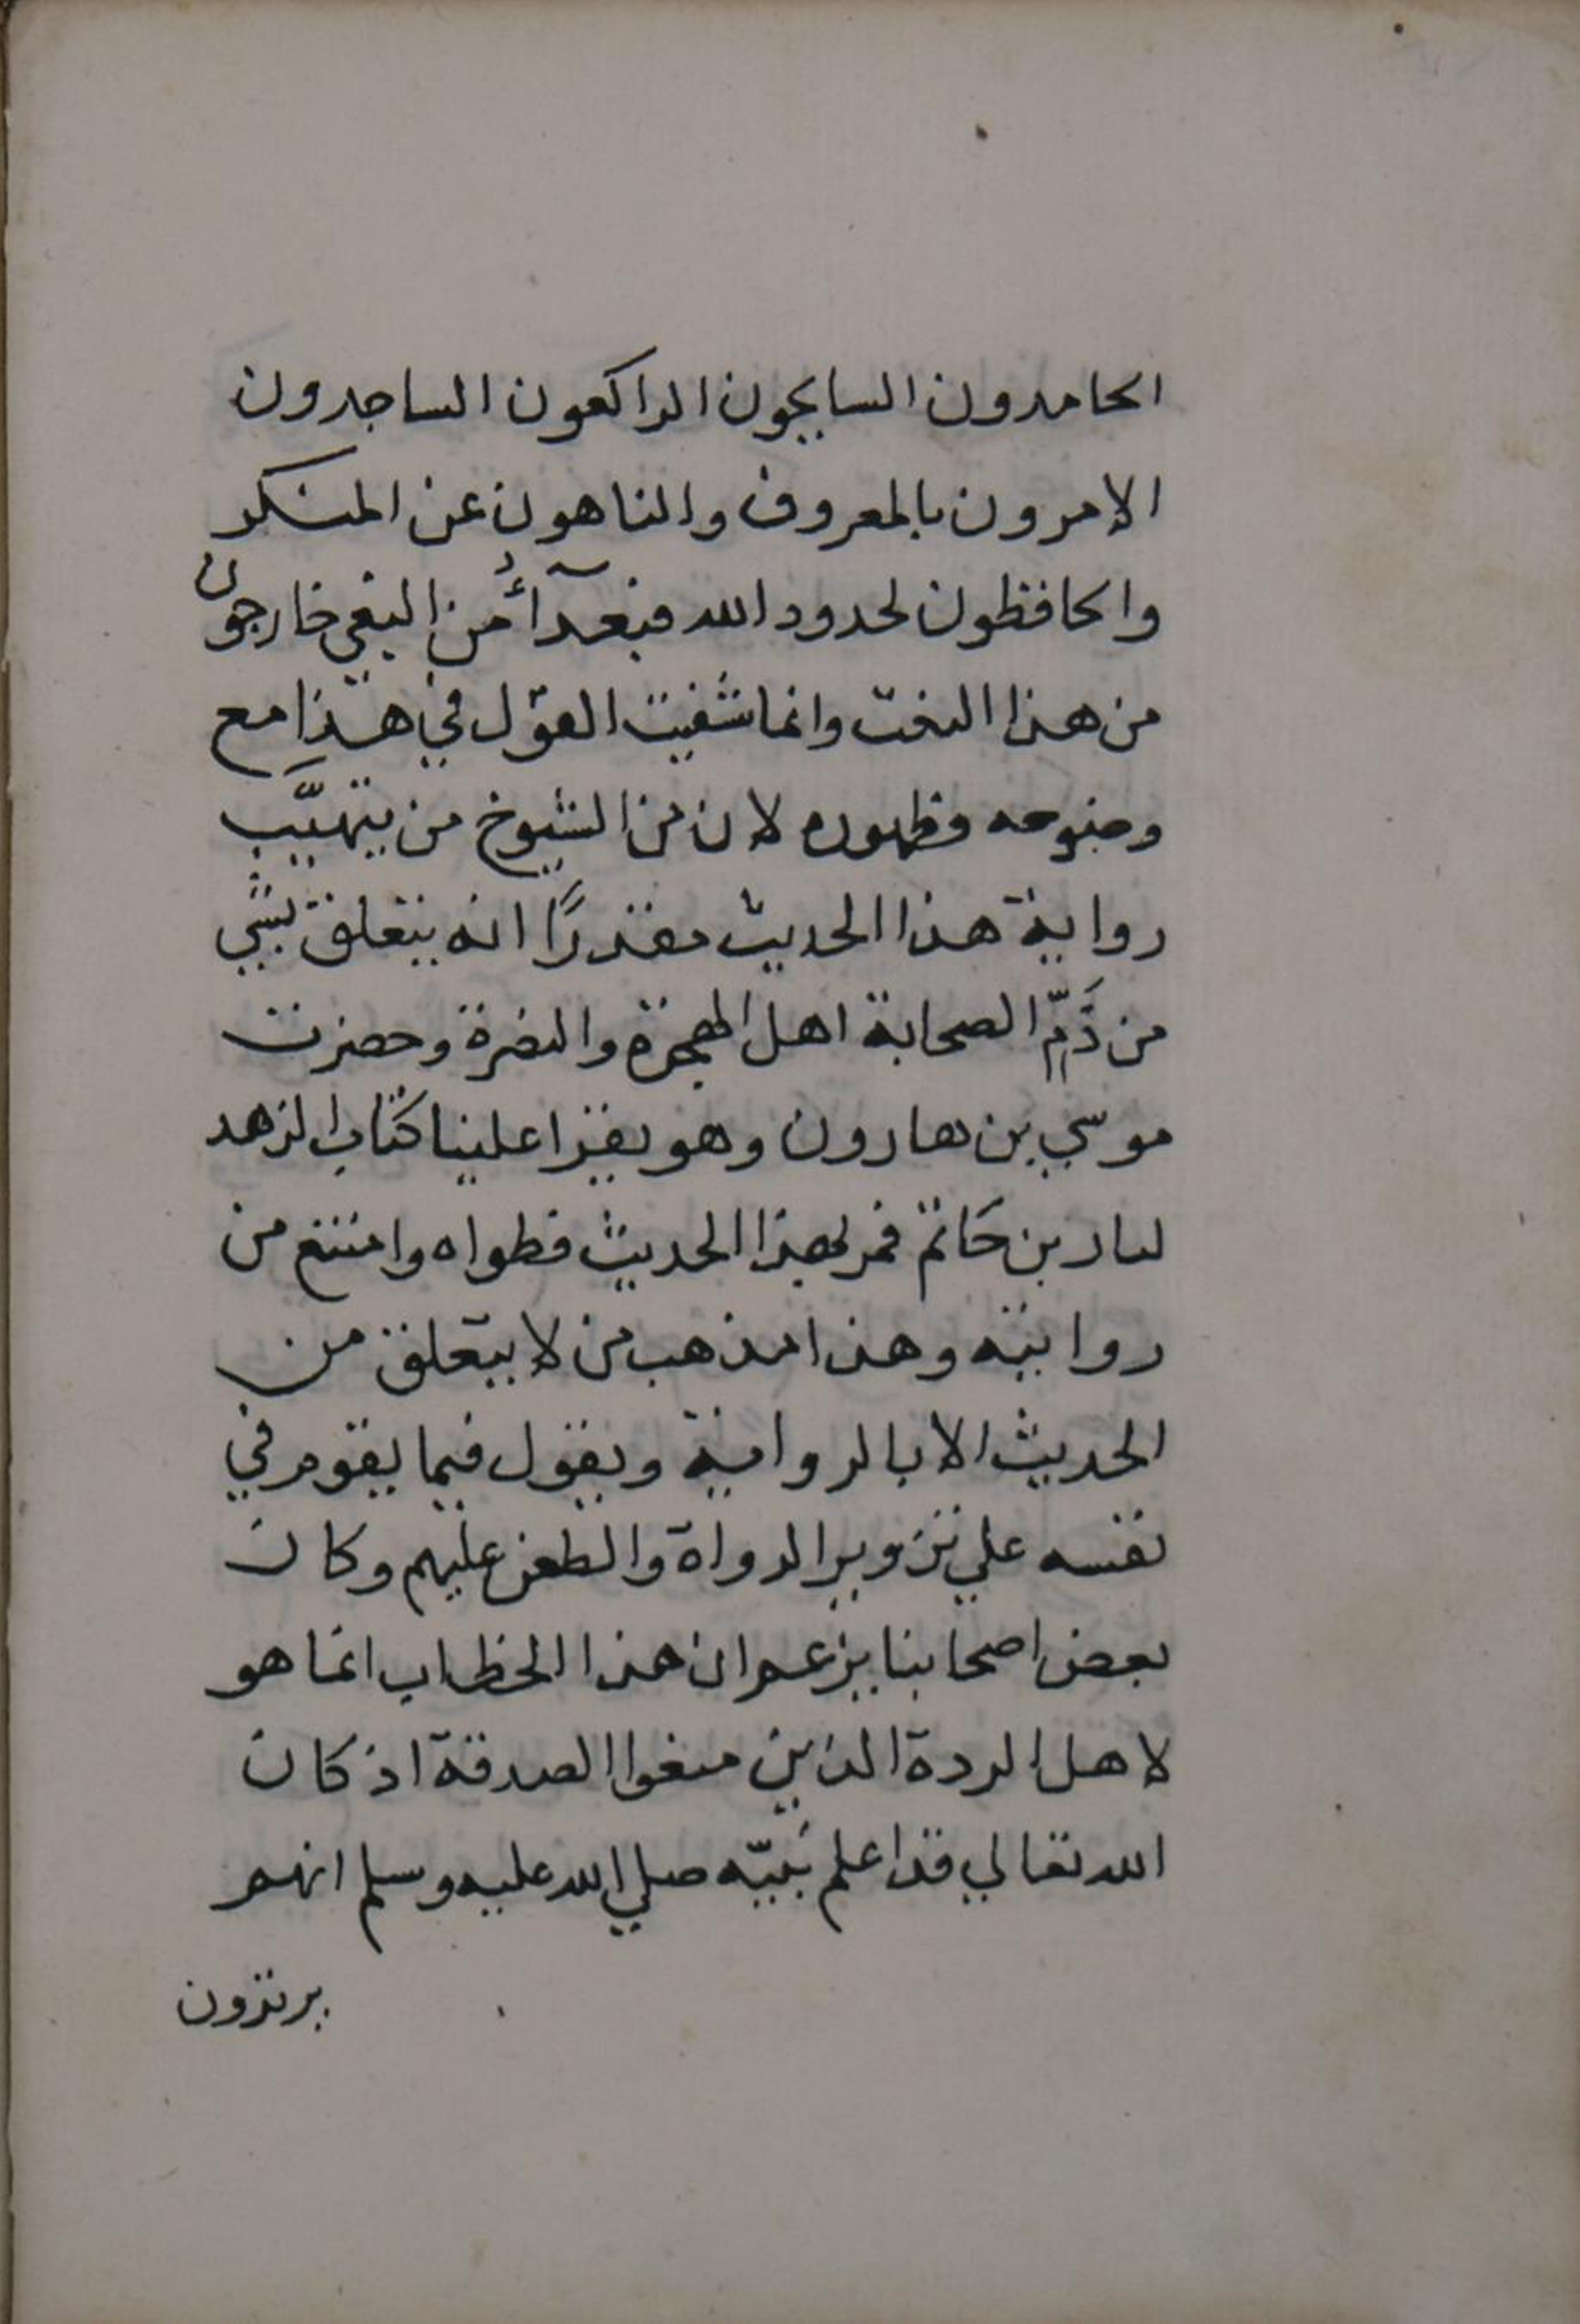 الحامدون السايحون الراكعون الساجدون
الامرون بالمعروف والناهون عن المنكر
والحافظون لحدود الله فبعدآءُ من البغي خارجون
من هذا النعت وانما شفيت القول في هذا مع
وضوحه وظهوره لان من الشيوخ من يتهيَّب
رواية هذا الحديث مقدرًا انه يتعلق بشي
من ذَمّ الصحابة اهل الهجرة والنصرة وحضرت
موسي بن هارون وهو يقرا علينا كتاب الزهد
لسار بن حَاتم فمر بهذا الحديث فطواه وامتنع من
روايته وهذا مذهب من لا يتعلق من
الحديث الا بالرواية ويقول فيما يقوم في
نفسه علي تزوير الرواة والطعن عليهم وكان
بعض اصحابنا يزعم ان هذا الخطاب انما هو
لاهل الردة الذين منعوا الصدقة اذ كان
الله تعالي قد اعلم نَبيّه صلي الله عليه وسلم انهم
يرتدون